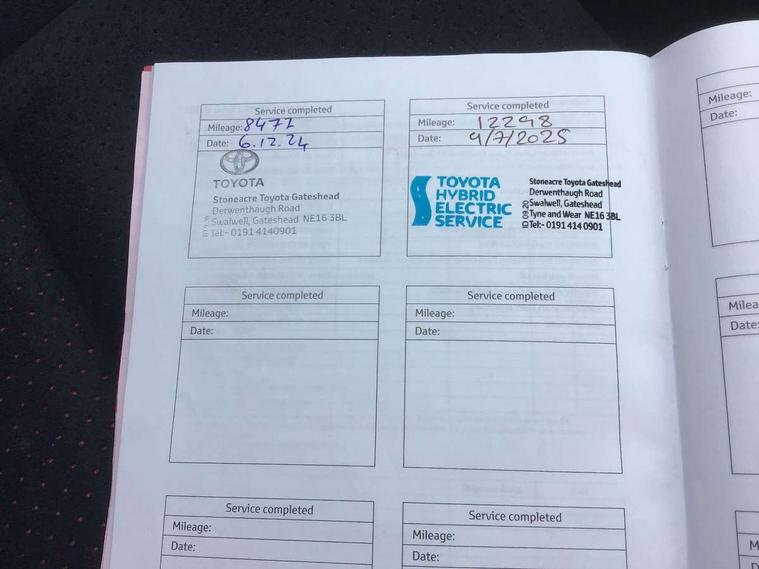 Service completed
Mileage: 8471
Date: 6.12.24
TOYOTA
Stoneacre Toyota Gateshead
Derwenthaugh Road
Swalwell, Gateshead NE16 3BL
Tel:- 0191 4140901
Service completed
Mileage: 12298
Date: 9/7/2025
TOYOTA
HYBRID
ELECTRIC
SERVICE
Stoneacre Toyota Gateshead
Derwenthaugh Road
Swalwell, Gateshead
Tyne and Wear NE16 3BL
Tel:- 0191 414 0901
Mileage:
Date:
Service completed
Mileage:
Date:
Service completed
Mileage:
Date:
Milea
Date:
Service completed
Mileage:
Date:
Service completed
Mileage:
Date:
M
D